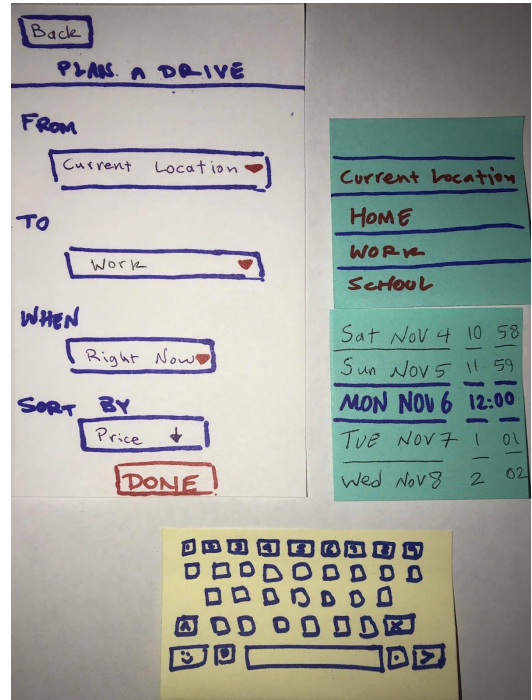 Back
PLAN A DRIVE
FROM
Current Location
TO
Work
WHEN
Right Now
SORT BY
Price
DONE
Current Location
HOME
WORK
SCHOOL
Sat Nov 4 10 58
Sun Nov 5 11 59
MON NOV 6 12:00
TUE NOV 7 1 01
Wed Nov 8 2 02
1 2 3 4 5 6 7 8 9